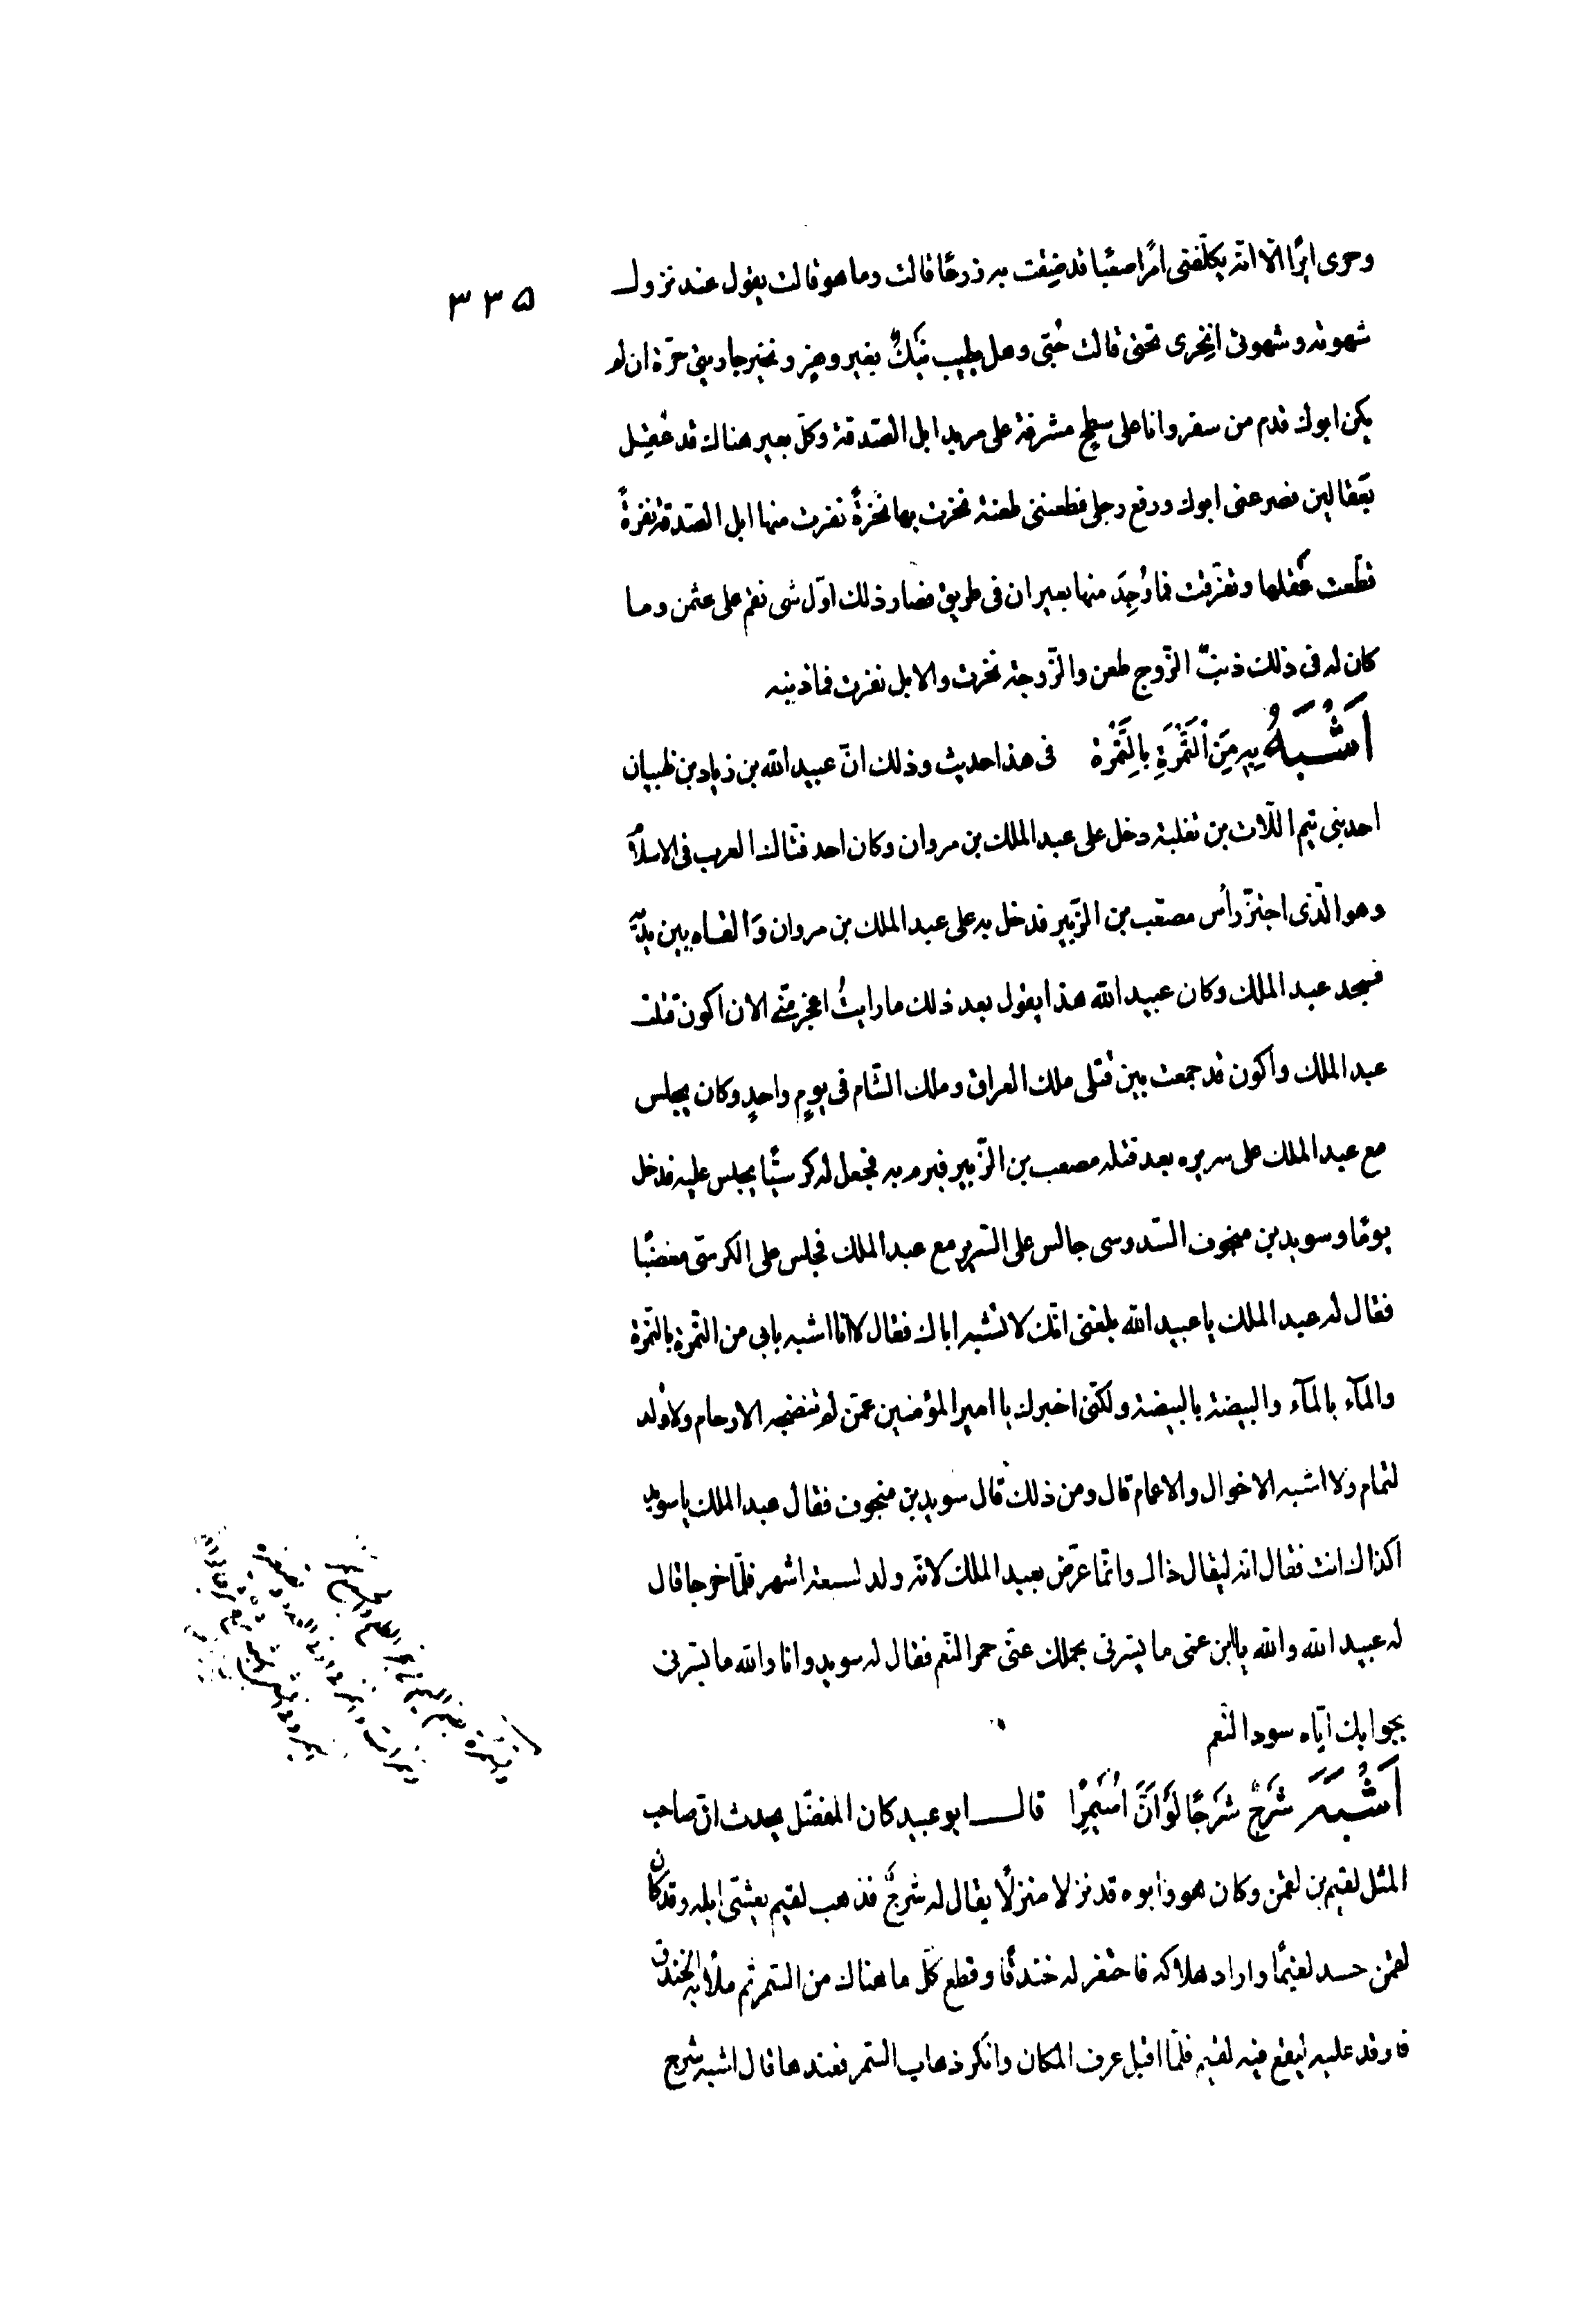 ٣٣۵
وحرى ابرًا الّا انّه يكلّفنى امرًا صعبًا قد ضقت به ذرعًا قالت وما هو قالت يقول عند نزول
شهوته وشهوتى انخرى تحتى قالت حُبّى وهل يطيب نيكٌ بغير وهز ونخير جاريتى حرّة ان لم
يكن ابوك قدم من سفر وانا على سطح مشرفة على مربد ابل الصّدقة وكلّ بعير هناك قد عُقِل
بعقالين فصرعنى ابوك ورفع رجلى فطعننى طعنة نخرت بها نخرةً نفرت منها ابل الصّدقة نفرةً
قطّعت عُقلها وتفرّقت فما وُجِدَ منها بعيران فى طريق فصار ذلك اوّل شى نقم على عثمن وما
كان له فى ذلك ذنبٌ الزّوج طعن والزّوجة نخرت والابل نفرت فما ذنبه
اَشْبَهُ بِهِ مِنَ اْلتَّمْرَةِ بِالتَّمْرَة فى هذا حديث وذلك انّ عبيد الله بن زياد بن ظبيان
احد بنى تيم اللّات بن ثعلبة دخل على عبد الملك بن مروان وكان احد فتّاك العرب فى الاسلام
وهو الّذى احتزّ رأس مصعب بن الزّبير فدخل به على عبد الملك بن مروان وَالقاه بين يديه
فسجد عبد الملك وكان عبيد الله هذا يقول بعد ذلك ما رايتُ اعجز منّى الان اكون قتلت
عبد الملك واكون قد جمعت بين قتلى ملك العراق وملك الشّام فى يومٍ واحدٍ وكان يجلس
مع عبد الملك على سريره بعد قتله مصعب بن الزّبير فبرم به فجعل له كرسيًّا يجلس عليه فدخل
يومًا وسويد بن منجوف السّدوسى جالس على السّرير مع عبد الملك فجلس على الكرسىّ مغضبًا
فقال له عبد الملك يا عبيد الله بلغنى انّك لا تشبه اباك فقال لانا اشبه بابى من التّمرة بالتّمرة
والمآء بالمآء والبيضة بالبيضة ولكنّى اخبرك يا امير المؤمنين عمّن لم تنضجه الارحام ولا ولد
لتمام ولا اشبه الاخوال والاعمام قال ومن ذلك قال سويد بن منجوف فقال عبد الملك يا سويد
اكذاك انت فقال انه ليقال ذاك وانّما عرّض بعبد الملك لانّه ولد لسبعة اشهر فلمّا خرجا قال
له عبيد الله والله يا ابن عمّى ما يسرّنى بحملك عنّى حمر النّعم فقال له سويد وانا والله ما يسرّنى
بجوابك ايّاه سود النّعم
اَشْبَهَ شَرْجٌ شَرْجًا لَوْ اَنَّ اُسَيْمِرًا قال ابو عبيد كان المفضّل يحدث انّ صاحب
المثل لقيم بن لقمن وكان هو وابوه قد نزلا منزلًا يقال له شرجٌ فذهب لقيم يعشّى ابله وقد كان
لقمن حسد لقيمًا واراد هلاكه فاحتفر له خندقًا وقطع كلّ ما هناك من السّمر ثم ملأ به الخندق
فاوقد عليه ليقع فيه لقيم فلمّا اقبل عرف المكان وانكر ذهاب السّمر فعندها قال اشبه شرج